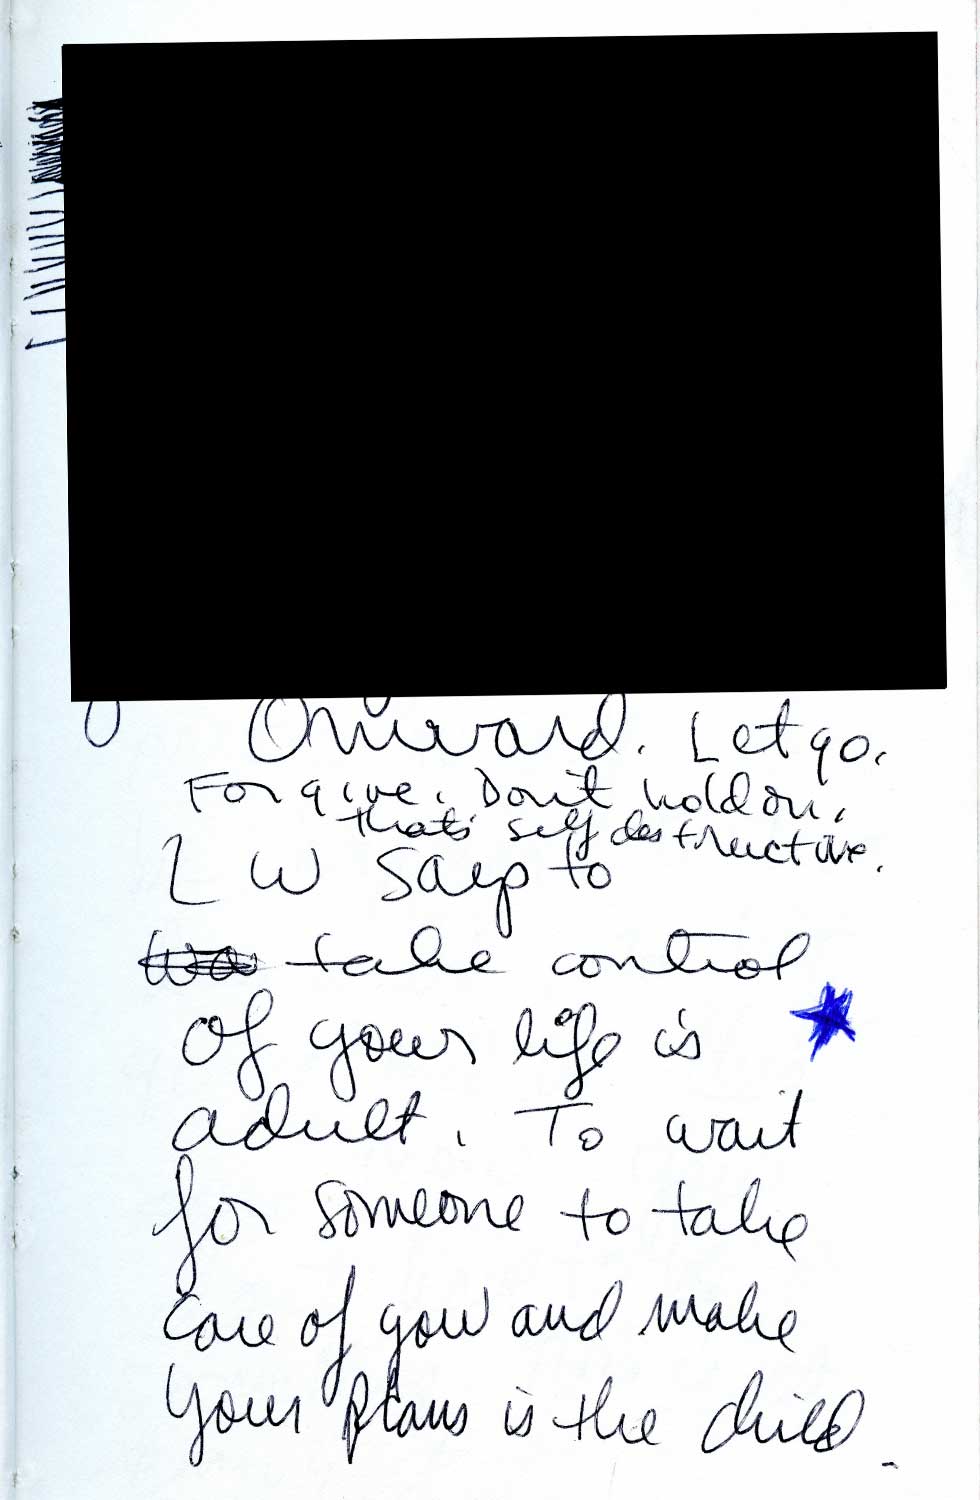 Onward. Let go.
Forgive. Don't hold on,
that's self destructive.
L W says to
take control
of your life is
adult. To wait
for someone to take
care of you and make
your plans is the child.